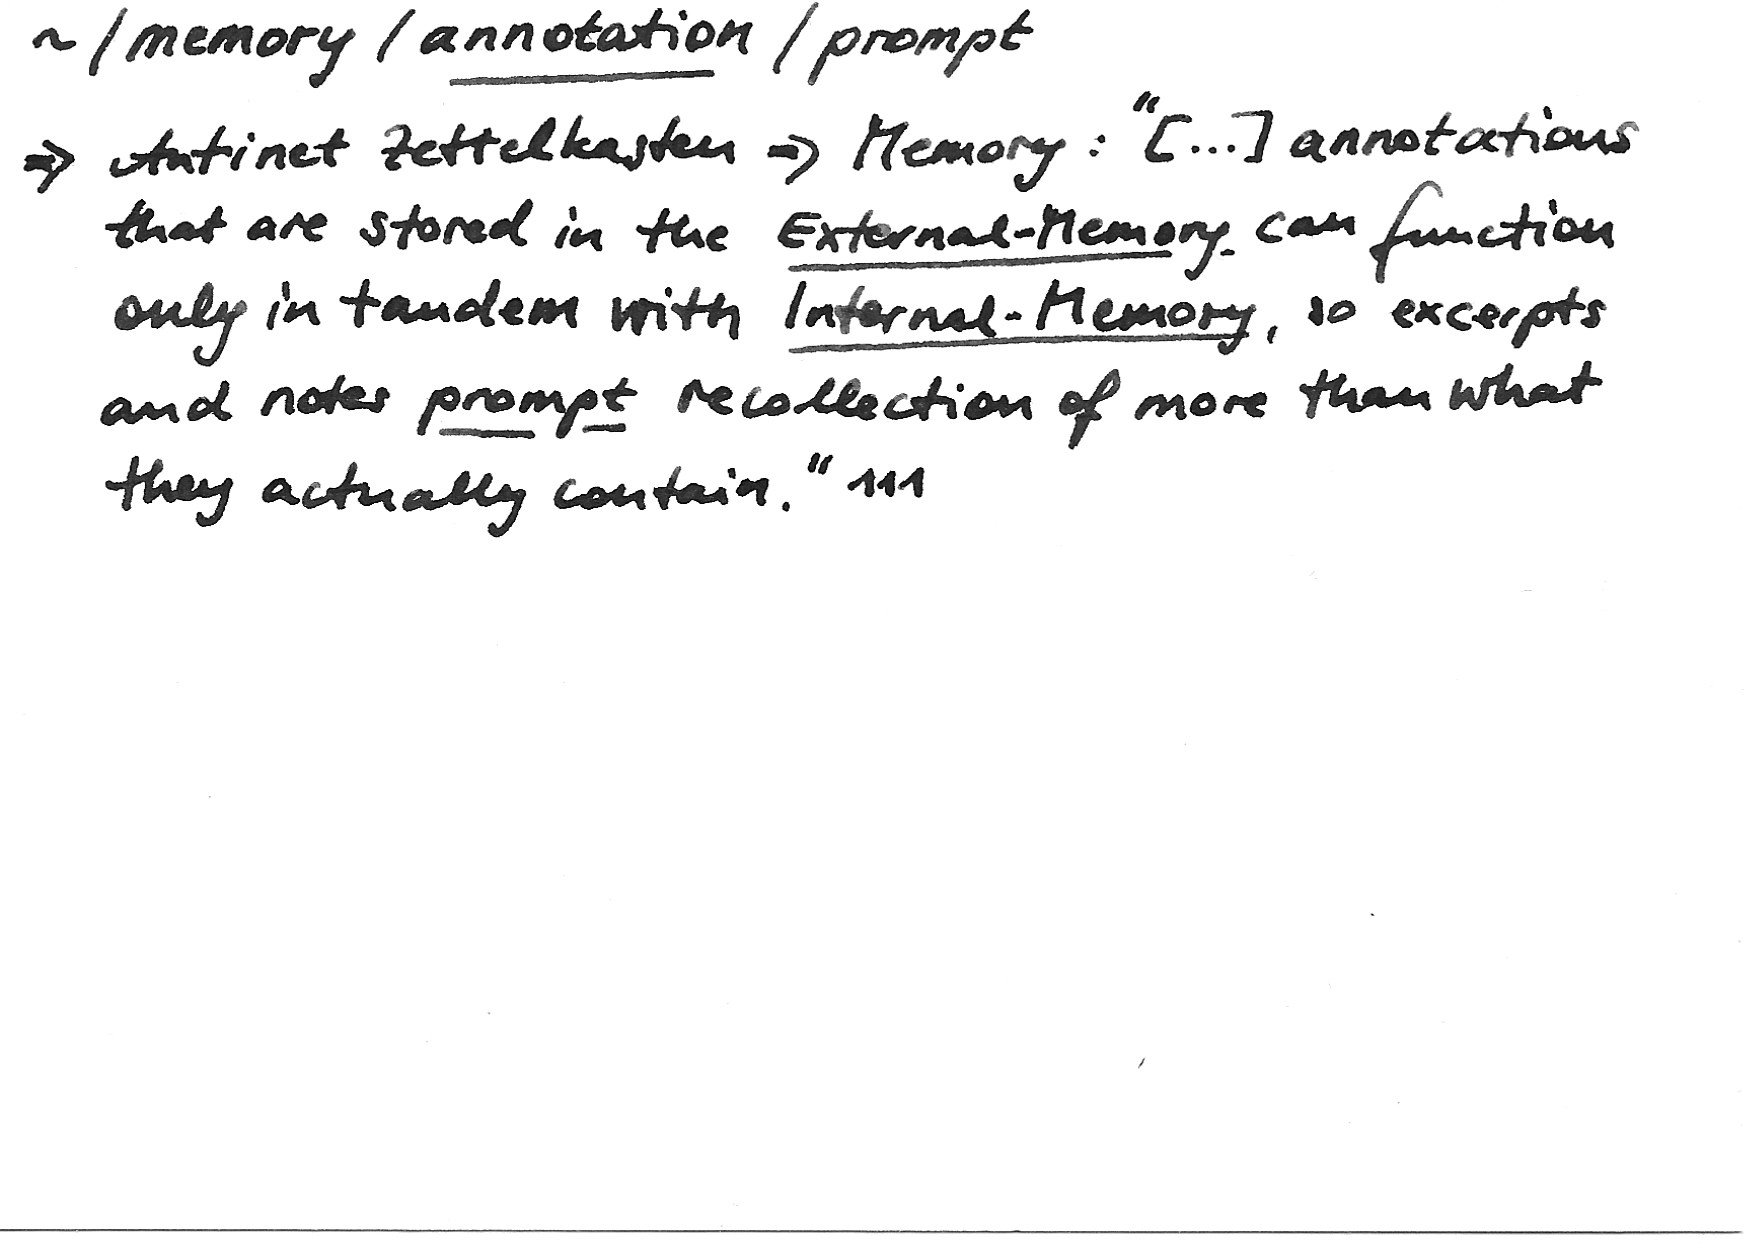 ~/memory/annotation/prompt
⇒ Antinet Zettelkasten ⇒ Memory: "[...] annotations
that are stored in the External-Memory can function
only in tandem with Internal-Memory, so excerpts
and notes prompt recollection of more than what
they actually contain." 111